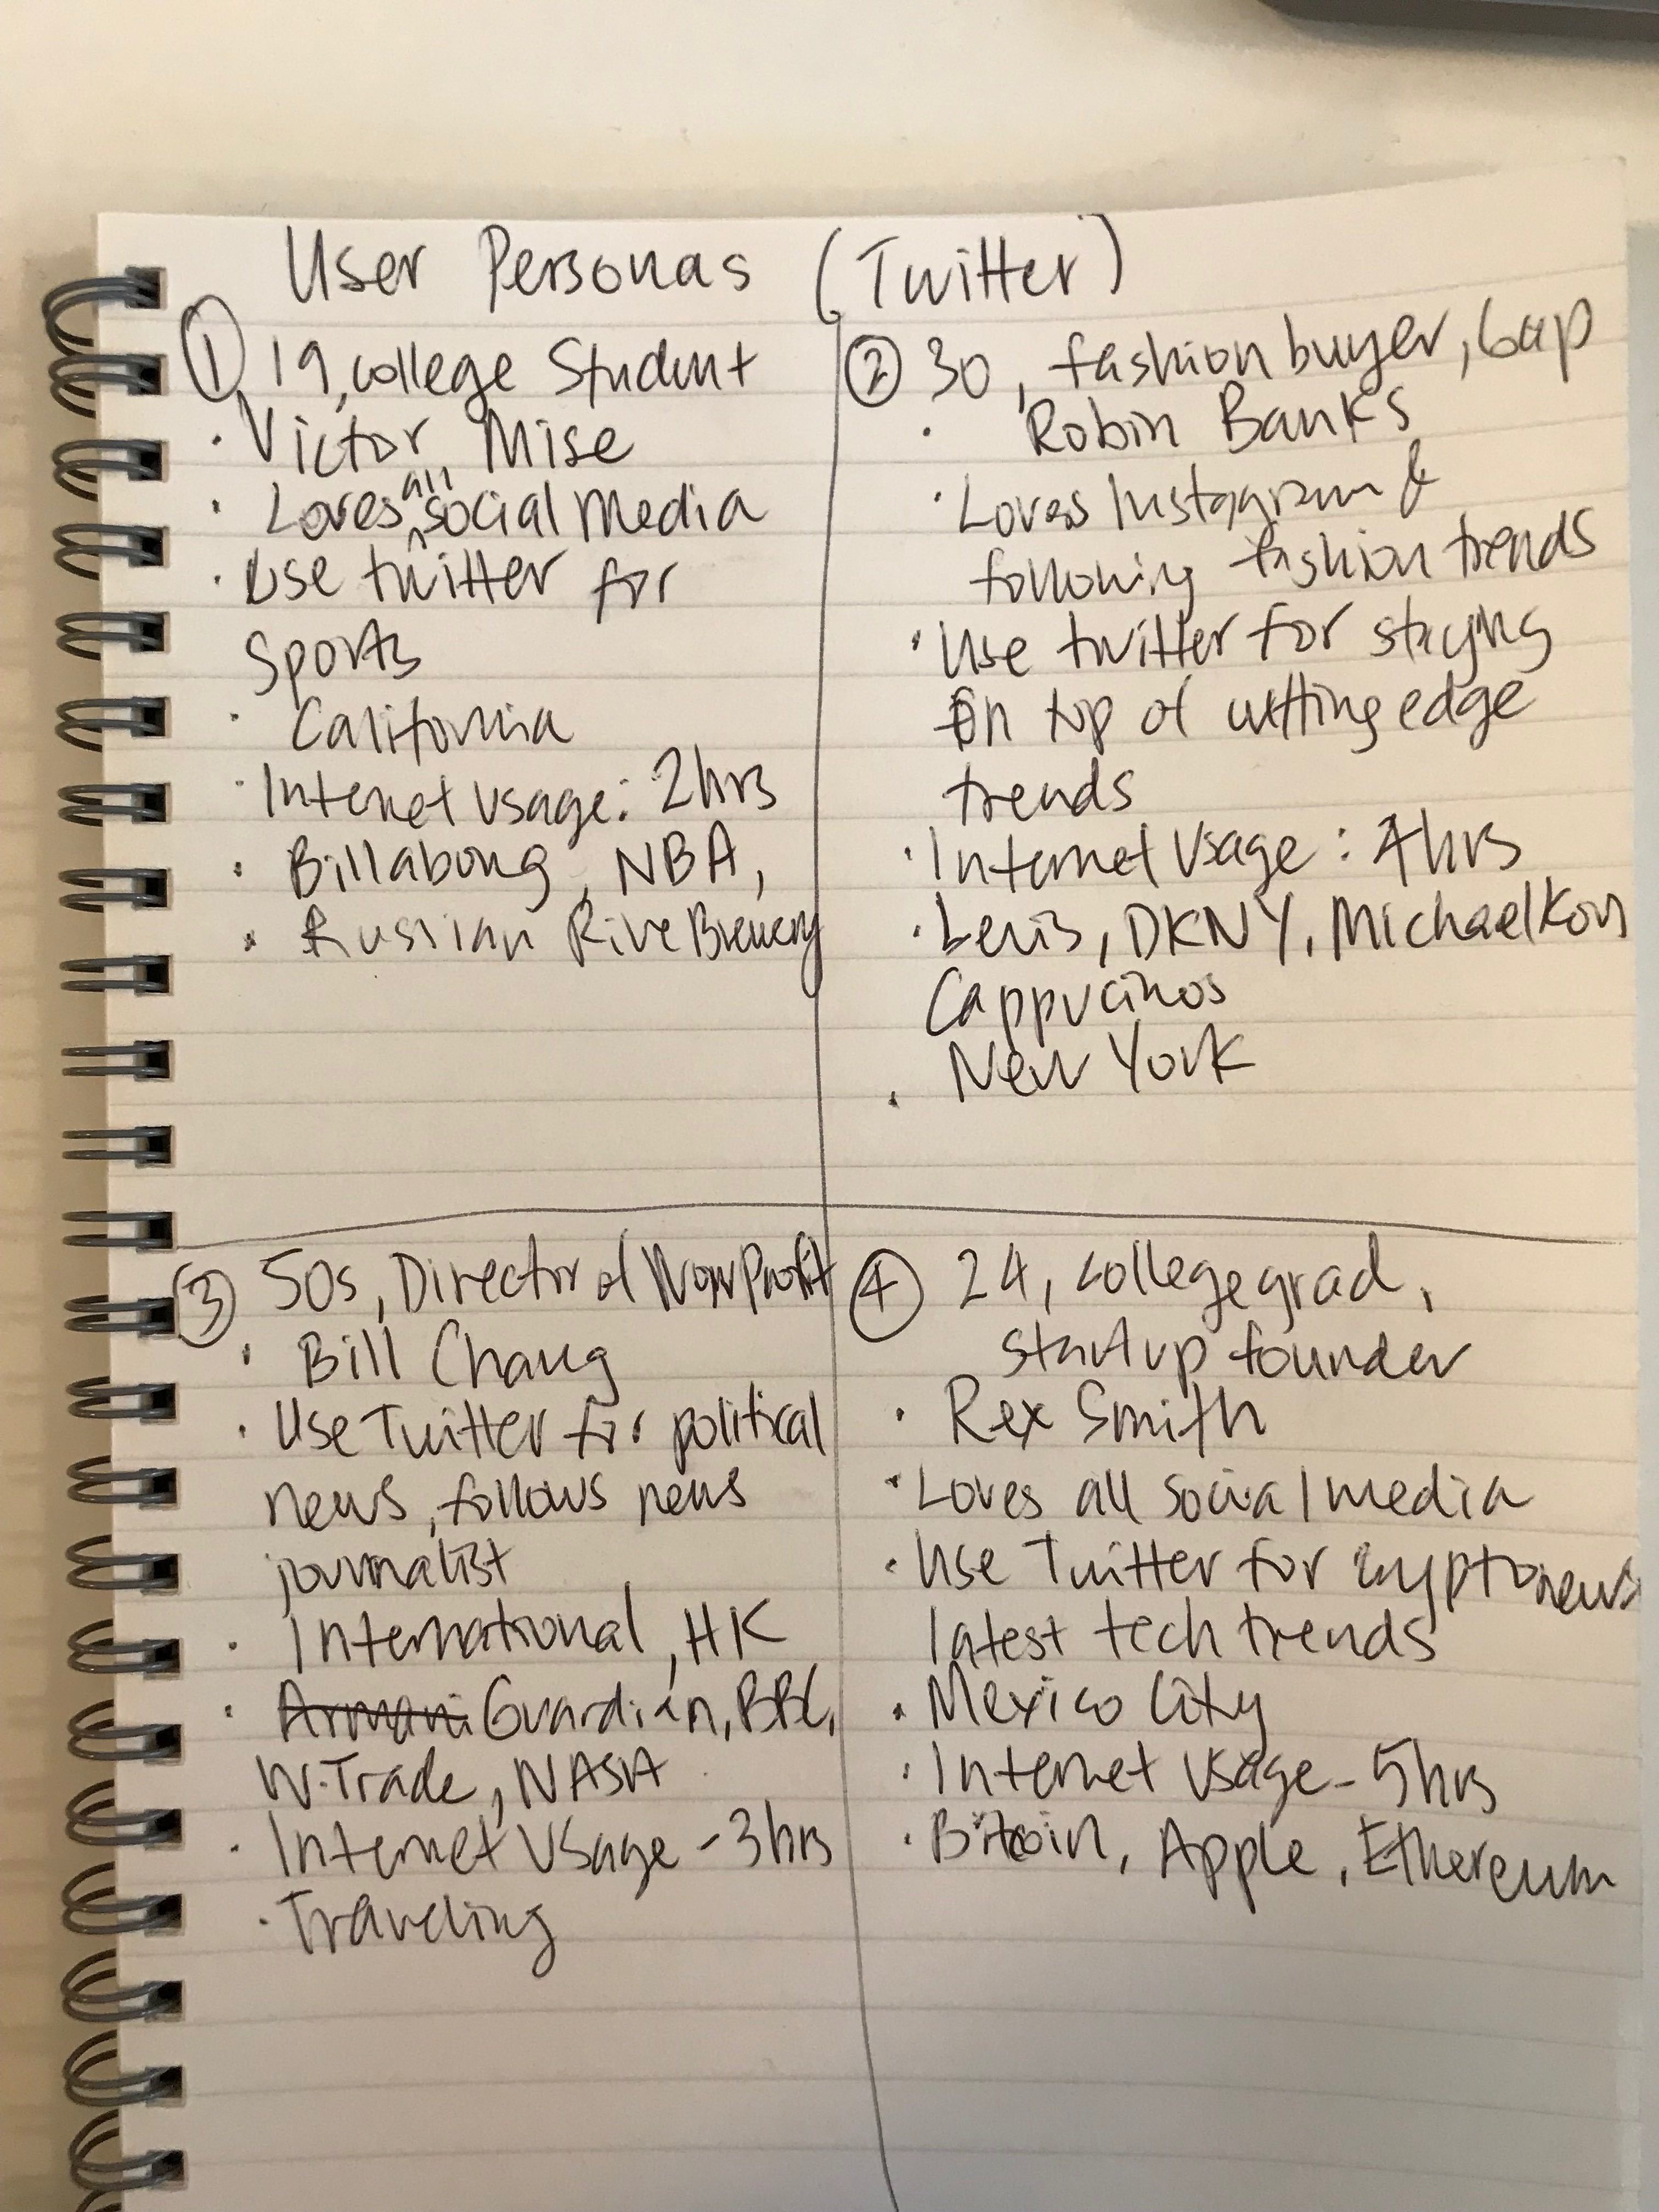 User Personas (Twitter)
① 19, college Student
· Victor Mise
· Loves all social media
· Use twitter for
Sports
· California
· Internet usage: 2hrs
· Billabong, NBA,
· Russian Rive Brewery
② 30, fashion buyer, Gap
· Robin Banks
· Loves Instagram &
following fashion trends
· Use twitter for staying
on top of cutting edge
trends
· Internet Usage: 4hrs
· Levis, DKNY, Michael Kors
Cappucinos
· New York
③ 50s, Director of Non Profit
· Bill Chang
· Use Twitter for political
news, follows news
journalist
· International, HK
· Armani Guardian, BBC,
W. Trade, NASA
· Internet Usage - 3hrs
· Traveling
④ 24, college grad,
startup founder
· Rex Smith
· Loves all social media
· Use Twitter for crypto news
latest tech trends
· Mexico City
· Internet Usage - 5hrs
· Bitcoin, Apple, Ethereum